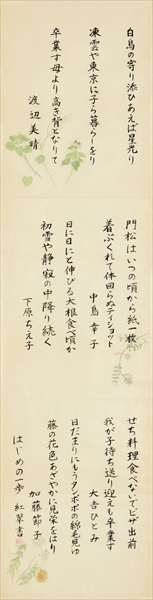 白鳥の寄り添ひあえば星光り
凍雲や東京に子ら暮らしをり
卒業す母より高き背となりて
渡辺美晴
門松はいつの頃から紙一枚
着ぶくれて体回らぬティショット
中島幸子
日に日にと伸びる大根食べ頃か
初雪や静寂の中降り続く
下原ちえ子
せち料理食べないでピザ出前
我が子待ち送り迎えも卒業す
大吉ひとみ
日だまりにもうタンポポの綿毛見ゆ
藤の花色あざやかに見栄をはり
加藤節子
はじめの一歩 紅翠書